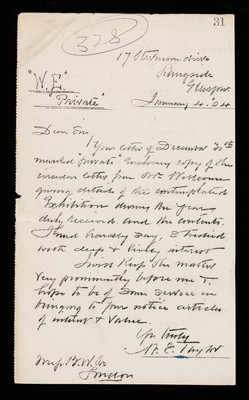 31
328
17 Stevenson drive
Langside
Glasgow.
"W.E."
"Private"
January 4. '24
Dear Sir,
Your letter of December 30th
marked "private" enclosing copy of the
circular letter from Mr. Wellcome
giving details of the contemplated
Exhibition during the year
duly received. And the contents
I need hardly say, I studied
with deep & lively interest
I will keep the matter
very prominently before me &
hope to be of some service in
bringing to your notice articles
of interest & value.
Yrs truly
W. E. Taylor
Messrs B. W. Co
London